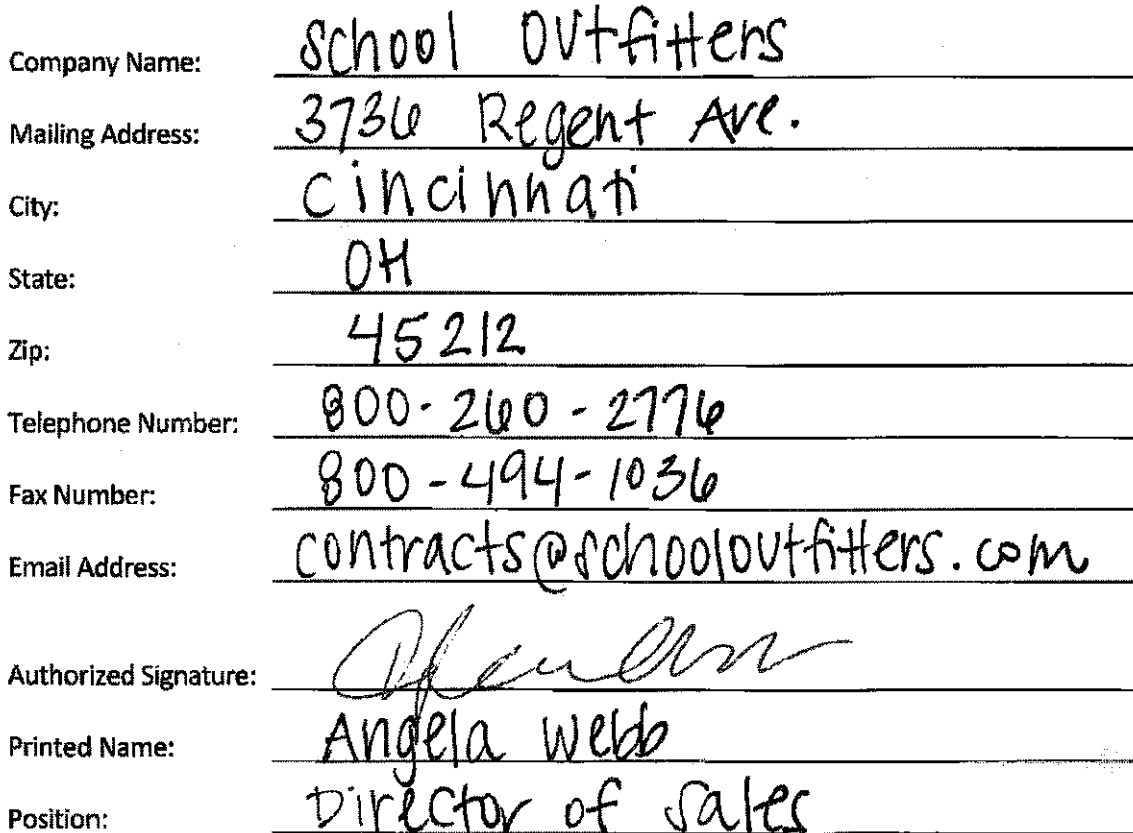 Company Name: School Outfitters
Mailing Address: 3736 Regent Ave.
City: Cincinnati
State: OH
Zip: 45212
Telephone Number: 800-260-2776
Fax Number: 800-494-1036
Email Address: contracts@schooloutfitters.com
Authorized Signature:
Printed Name: Angela Webb
Position: Director of Sales